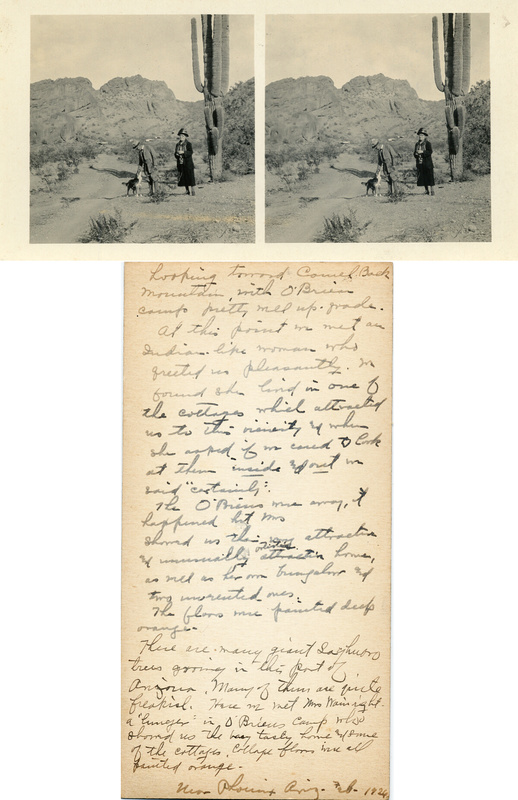 Looking toward Camel Back
Mountain, with O'Brien
camp pretty well up grade.
At this point we met an
Indian-like woman who
greeted us pleasantly. We
found she lived in one of
the cottages which attracted
us to this vicinity & when
she asked if we cared to look
at them inside & out we
said "certainly".
The O'Briens were away, it
happened but Mrs
showed us their very attractive
& unusually artistic home,
as well as her own bungalow and
two unrented ones.
The floors were painted deep
orange.
There are many giant
trees growing in this part of
Arizona. Many of them are quite
freakish. Here we met Mrs Wainright
a "lunger" in O'Briens Camp who
showed us the very tasty home & some
of the cottages. Cottage floors were all
painted orange.
Near Phoenix Ariz - Feb. 1926